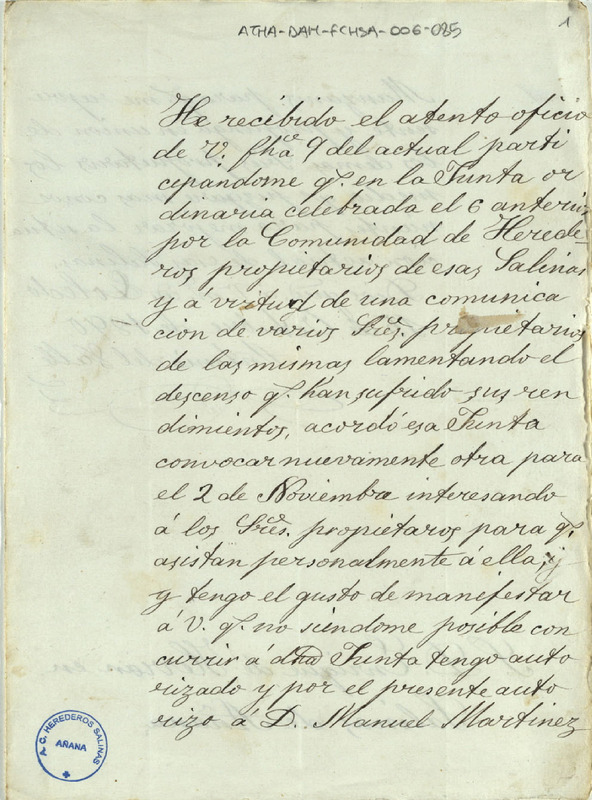 ATHA-DAH-FCHSA-006-085
1
He recibido el atento oficio
de V. fhã 9 del actual parti
cipandome q. en la Junta or
dinaria celebrada el 6 anterior
por la Comunidad de Herede-
ros propietarios de esas Salinas
y á virtud de una comunica
cion de varios Sres. propietarios
de las mismas lamentando el
descenso q. han sufrido sus ren
dimientos, acordó esa Junta
convocar nuevamente otra para
el 2 de Noviembre interesando
á los Sres. propietaros para q.
asistan personalmente á ella; y
y tengo el gusto de manifestar
á V. q. no siendome posible con
currir á dha Junta tengo auto
rizado y por el presente auto
rizo á D. Manuel Martinez
A. C. HEREDEROS SALINAS
AÑANA